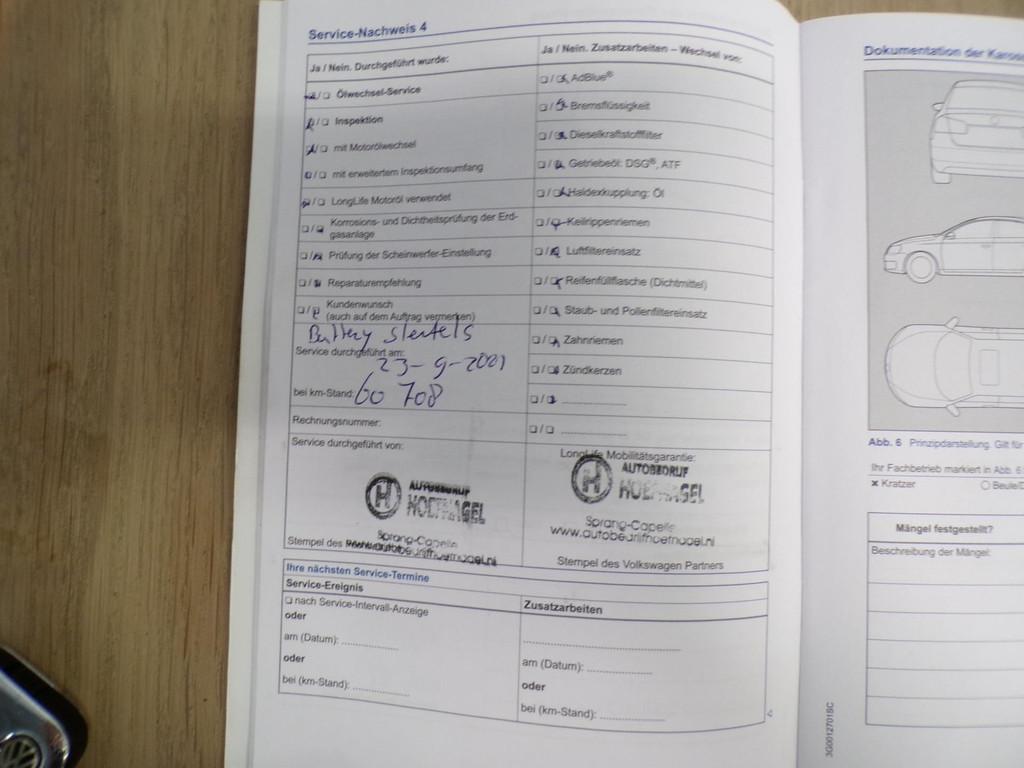 Service-Nachweis 4
Ja / Nein. Durchgeführt wurde:
Ölwechsel-Service
Inspektion
mit Motorölwechsel
mit erweitertem Inspektionsumfang
LongLife Motoröl verwendet
Korrosions- und Dichtheitsprüfung der Erd-
gasanlage
Prüfung der Scheinwerfer-Einstellung
Reparaturempfehlung
Kundenwunsch
(auch auf dem Auftrag vermerken)
Battery sleutels
Service durchgeführt am:
23-9-2021
bei km-Stand: 60 708
Rechnungsnummer:
Service durchgeführt von:
H AUTOBEDRIJF
HOEFNAGEL
Sprang-Capelle
www.autobedrijfhoefnagel.nl
Stempel des
Ja / Nein. Zusatzarbeiten – Wechsel von:
AdBlue®
Bremsflüssigkeit
Dieselkraftstofffilter
Getriebeöl: DSG®, ATF
Haldexkupplung: Öl
Keilrippenriemen
Luftfiltereinsatz
Reifenfüllflasche (Dichtmittel)
Staub- und Pollenfiltereinsatz
Zahnriemen
Zündkerzen
LongLife Mobilitätsgarantie:
H AUTOBEDRIJF
HOEFNAGEL
Sprang-Capelle
www.autobedrijfhoefnagel.nl
Stempel des Volkswagen Partners
Ihre nächsten Service-Termine
Service-Ereignis
nach Service-Intervall-Anzeige
oder
am (Datum):
oder
bei (km-Stand):
Zusatzarbeiten
am (Datum):
oder
bei (km-Stand):
Dokumentation der
Abb. 6 Prinzipdarstellung. Gilt für
Ihr Fachbetrieb markiert in Abb. 6
× Kratzer
Mängel festgestellt?
Beschreibung der Mängel:
3G0012701SC